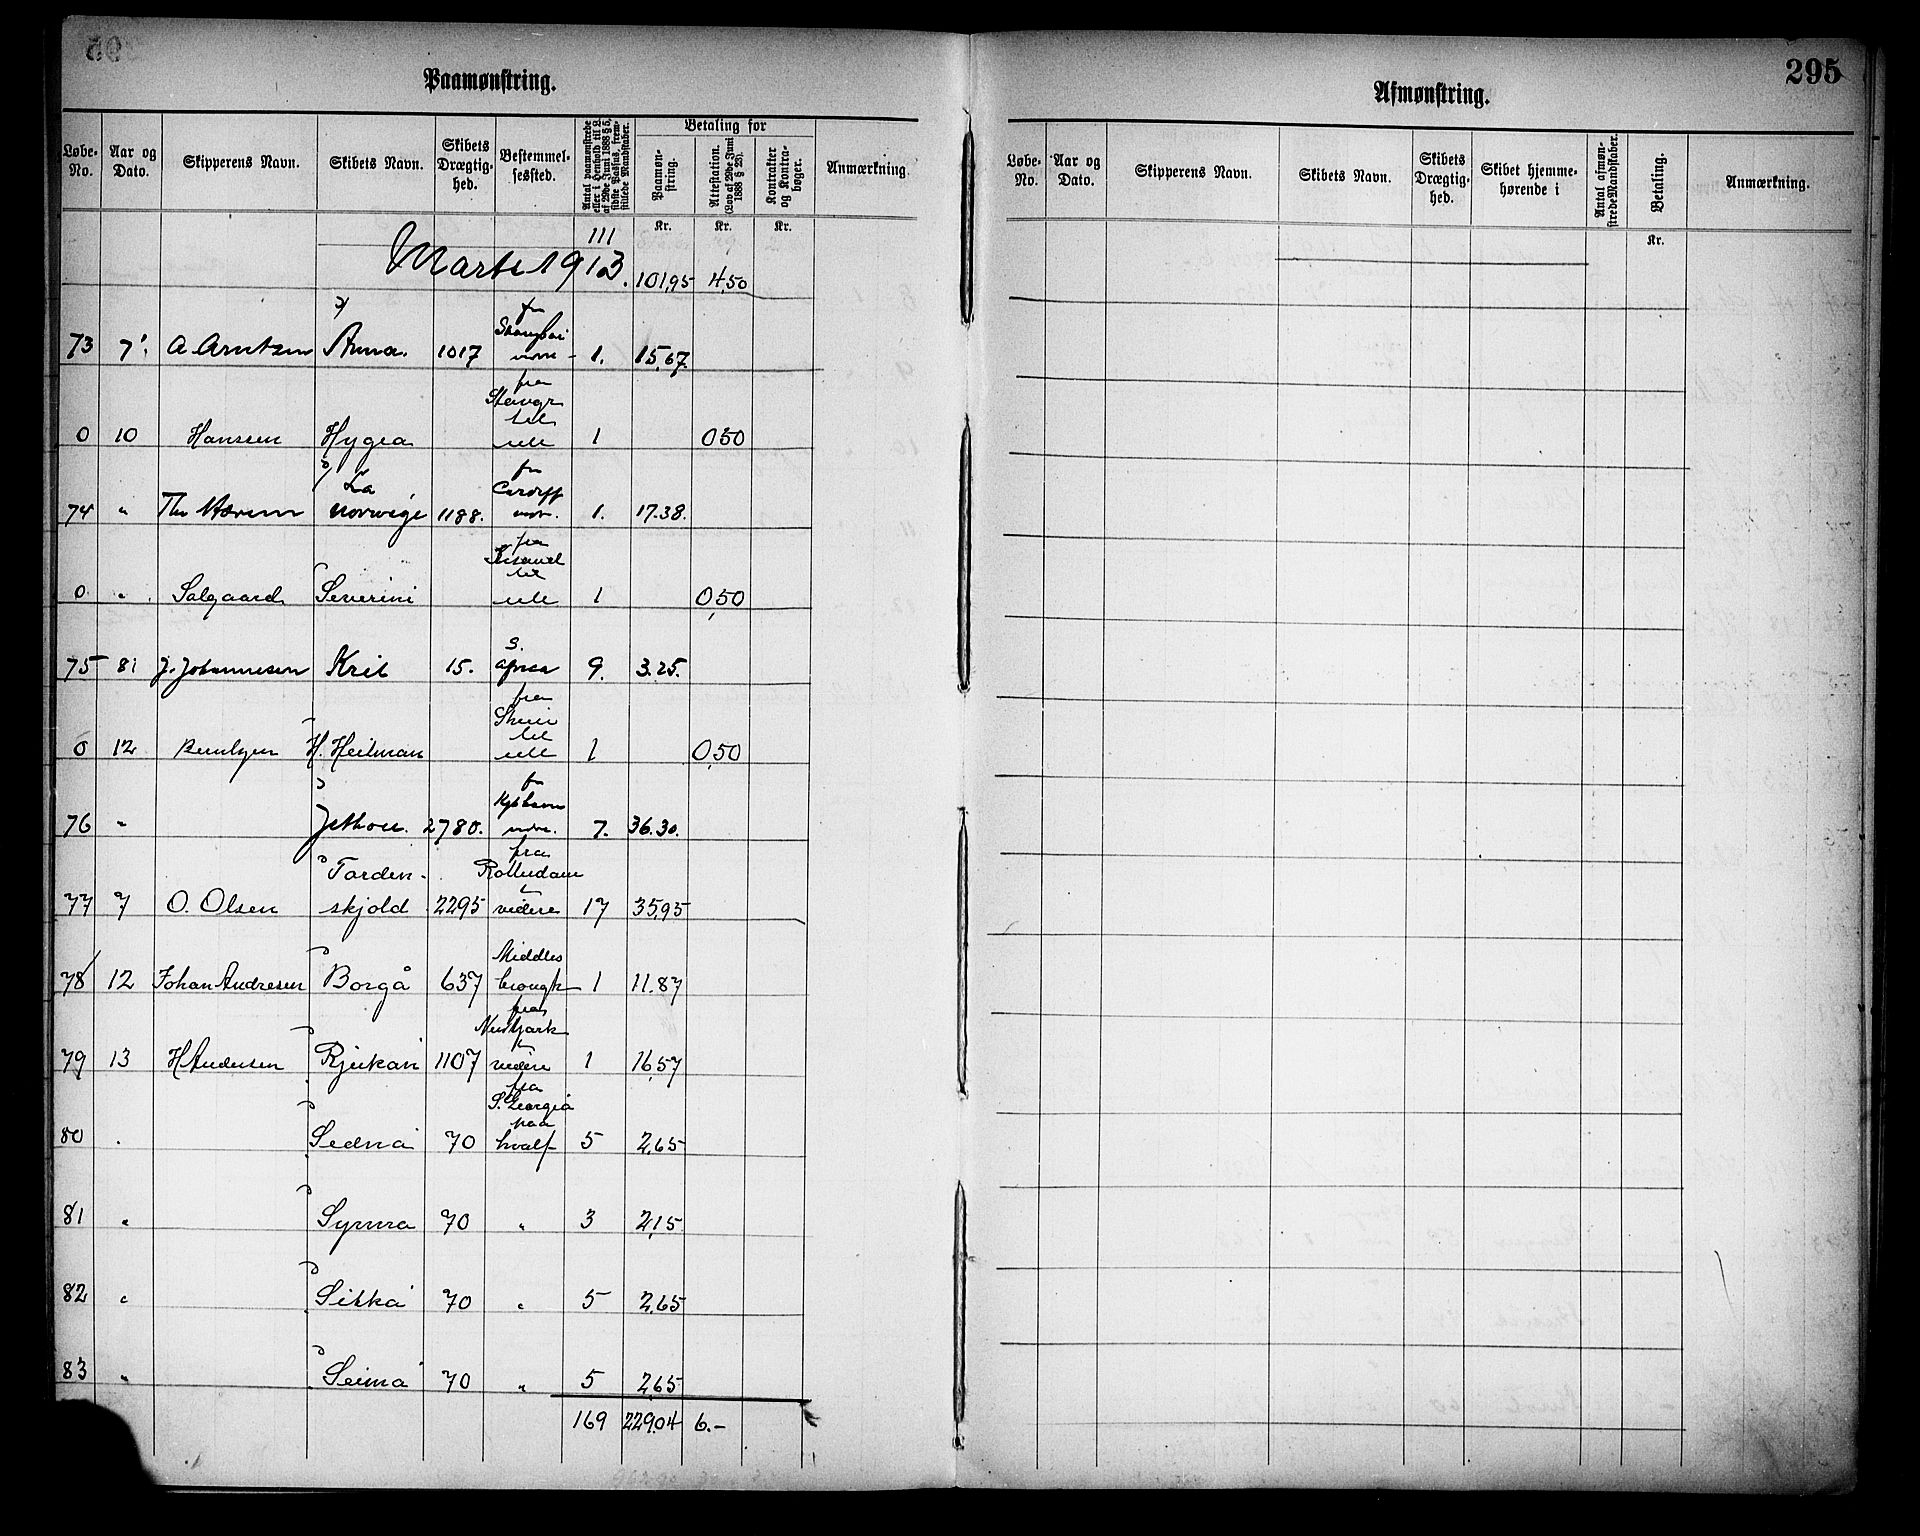 295
Paamønstring.
Afmønstring.
Løbe-No. Aar og Dato. Skipperens Navn. Skibets Navn. Skibets Drægtig-hed. Bestemmel-sessted. Antal paamønstrede eller i Henhold til L. af 29de Juni 1888 § 5, sidste Passus, frem-stillede Mandskaber. Betaling for Paamøn-string. Attestation. (Lov af 29de Juni 1888 § 23). Kontrakter og Kontra-bøger. Anmærkning.
Løbe-No. Aar og Dato. Skipperens Navn. Skibets Navn. Skibets Drægtig-hed. Skibet hjemme-hørende i Antal afmøn-strede Mandskaber. Betaling. Anmærkning.
Kr. Kr. Kr. Kr.
111
Marts 1913. 101,95 4,50
73 7 A Arntzen Anna 1017 fra Shanghai 1. 15,67
0 10 Hanssen Hygea fra til 1 0,50
74 " La Norwége 1188. fra Cardiff 1. 17.38.
0 " Salgaard Severini fra til 1 0,50
75 8 J. Johannesen Krit 15. S. 9. 3.25.
0 12 H. Heitman fra til 1 0,50
76 " Jethou. 2780. fra Kjøbhavn 7. 36.30.
77 7 O. Olsen Torden-skjold 2295 fra Rotterdam videre 17 35,95
78 12 Johan Andresen Borgå 637 Middles brough 1 11.87
79 13 H Andersen Rjukan 1107 fra videre 1 16,57
80 Sedna 70 fra S. Georgia paa hvalf 5 2,65
81 " Symra 70 " 3 2,15
82 " Sitka 70 " 5 2,65
83 " Seima 70 " 5 2,65
169 229,04 6.-